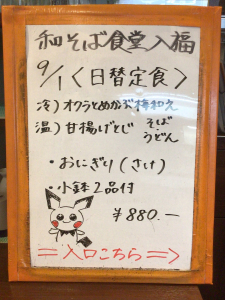 和そば食堂入福
9/1〈日替定食〉
冷）オクラとめかぶ梅和え
温）甘揚げとじ そば
うどん
・おにぎり（さけ）
・小鉢2品付
¥880.ー
＝入口こちら＝＞